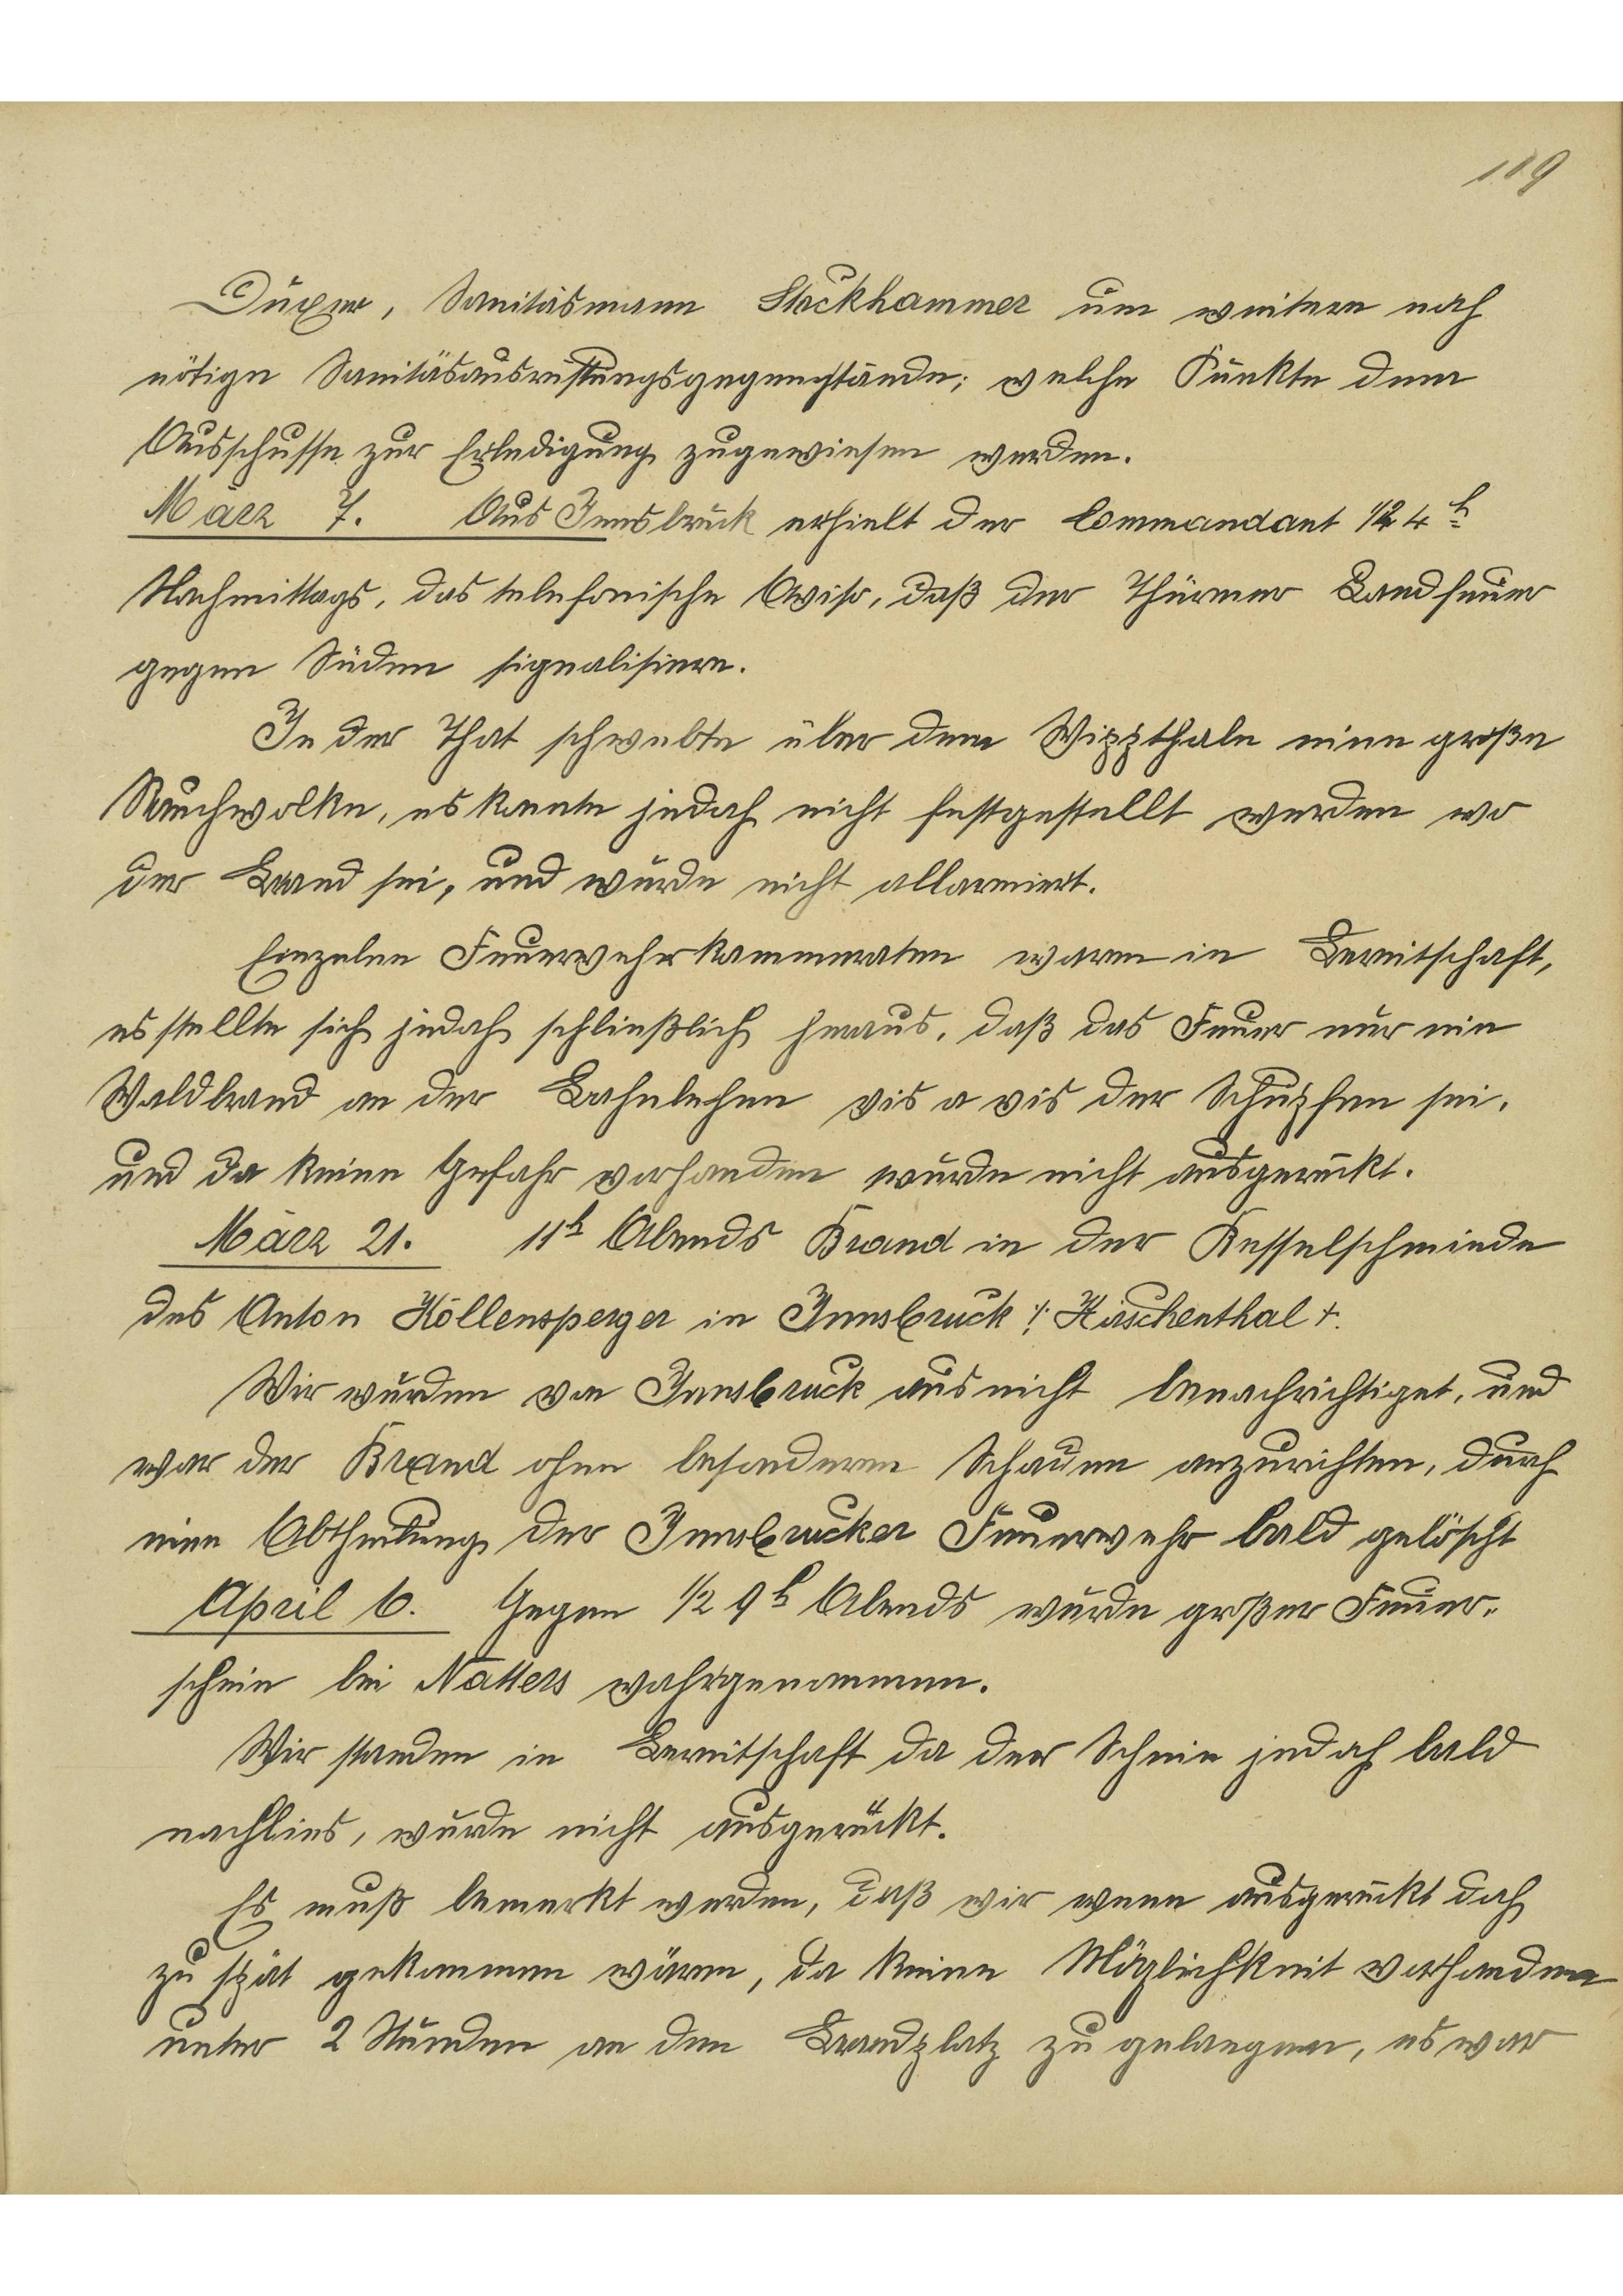 119
Duxer, Sanitäsmann Stockhammer um weitere noch
nötige Sanitäsausristungsgegenstände; welche Punkte dem
Ausschusse zur Erledigung zugewiesen werden.
März 7. Aus Innsbruck erhielt der Commandant 1/2 4 h
Nachmittags, das telefonische Aviso, daß der Thürmer Landfeuer
gegen Süden signalisiere.
In der That schwebte über dem Wippthale eine große
Rauchwolke, es konnte jedoch nicht festgestellt werden wo
der Brand sei, und wurde nicht allarmiert.
Einzelne Feuerwehrkammeraten waren in Bereitschaft,
es stellte sich jedoch schließlich heraus, daß das Feuer nur ein
Waldbrand an der Bahnlehne vis a vis der Schupfen sei,
und da keine Gefahr vorhanden wurde nicht ausgerückt.
März 21. 11h Abends Brand in der Kesselschmiede
des Anton Köllensperger in Innsbruck /: Hirschenthal :/.
Wir wurden von Innsbruck aus nicht benachrichtiget, und
war der Brand ohne besonderen Schauen anzurichten, durch
eine Abtheilung der Innsbrucker Feuerwehr bald gelöscht
April 6. Gegen 1/2 9h Abends wurde großer Feuer-
schein bei Natters wahrgenommen.
Wir standen in Bereitschaft da der Schein jedoch bald
nachlies, wurde nicht ausgerückt.
Es muß bemerkt werden, daß wir wenn ausgerückt doch
zu spät gekommen wären, da keine Möglichkeit vorhanden
unter 2 Stunden an den Brandplatz zu gelangen, es war